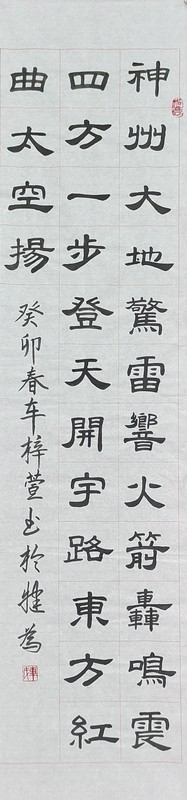 神州大地驚雷響火箭轟鳴震
四方一步登天開宇路東方紅
曲太空揚
癸卯春车梓萱书於犍為